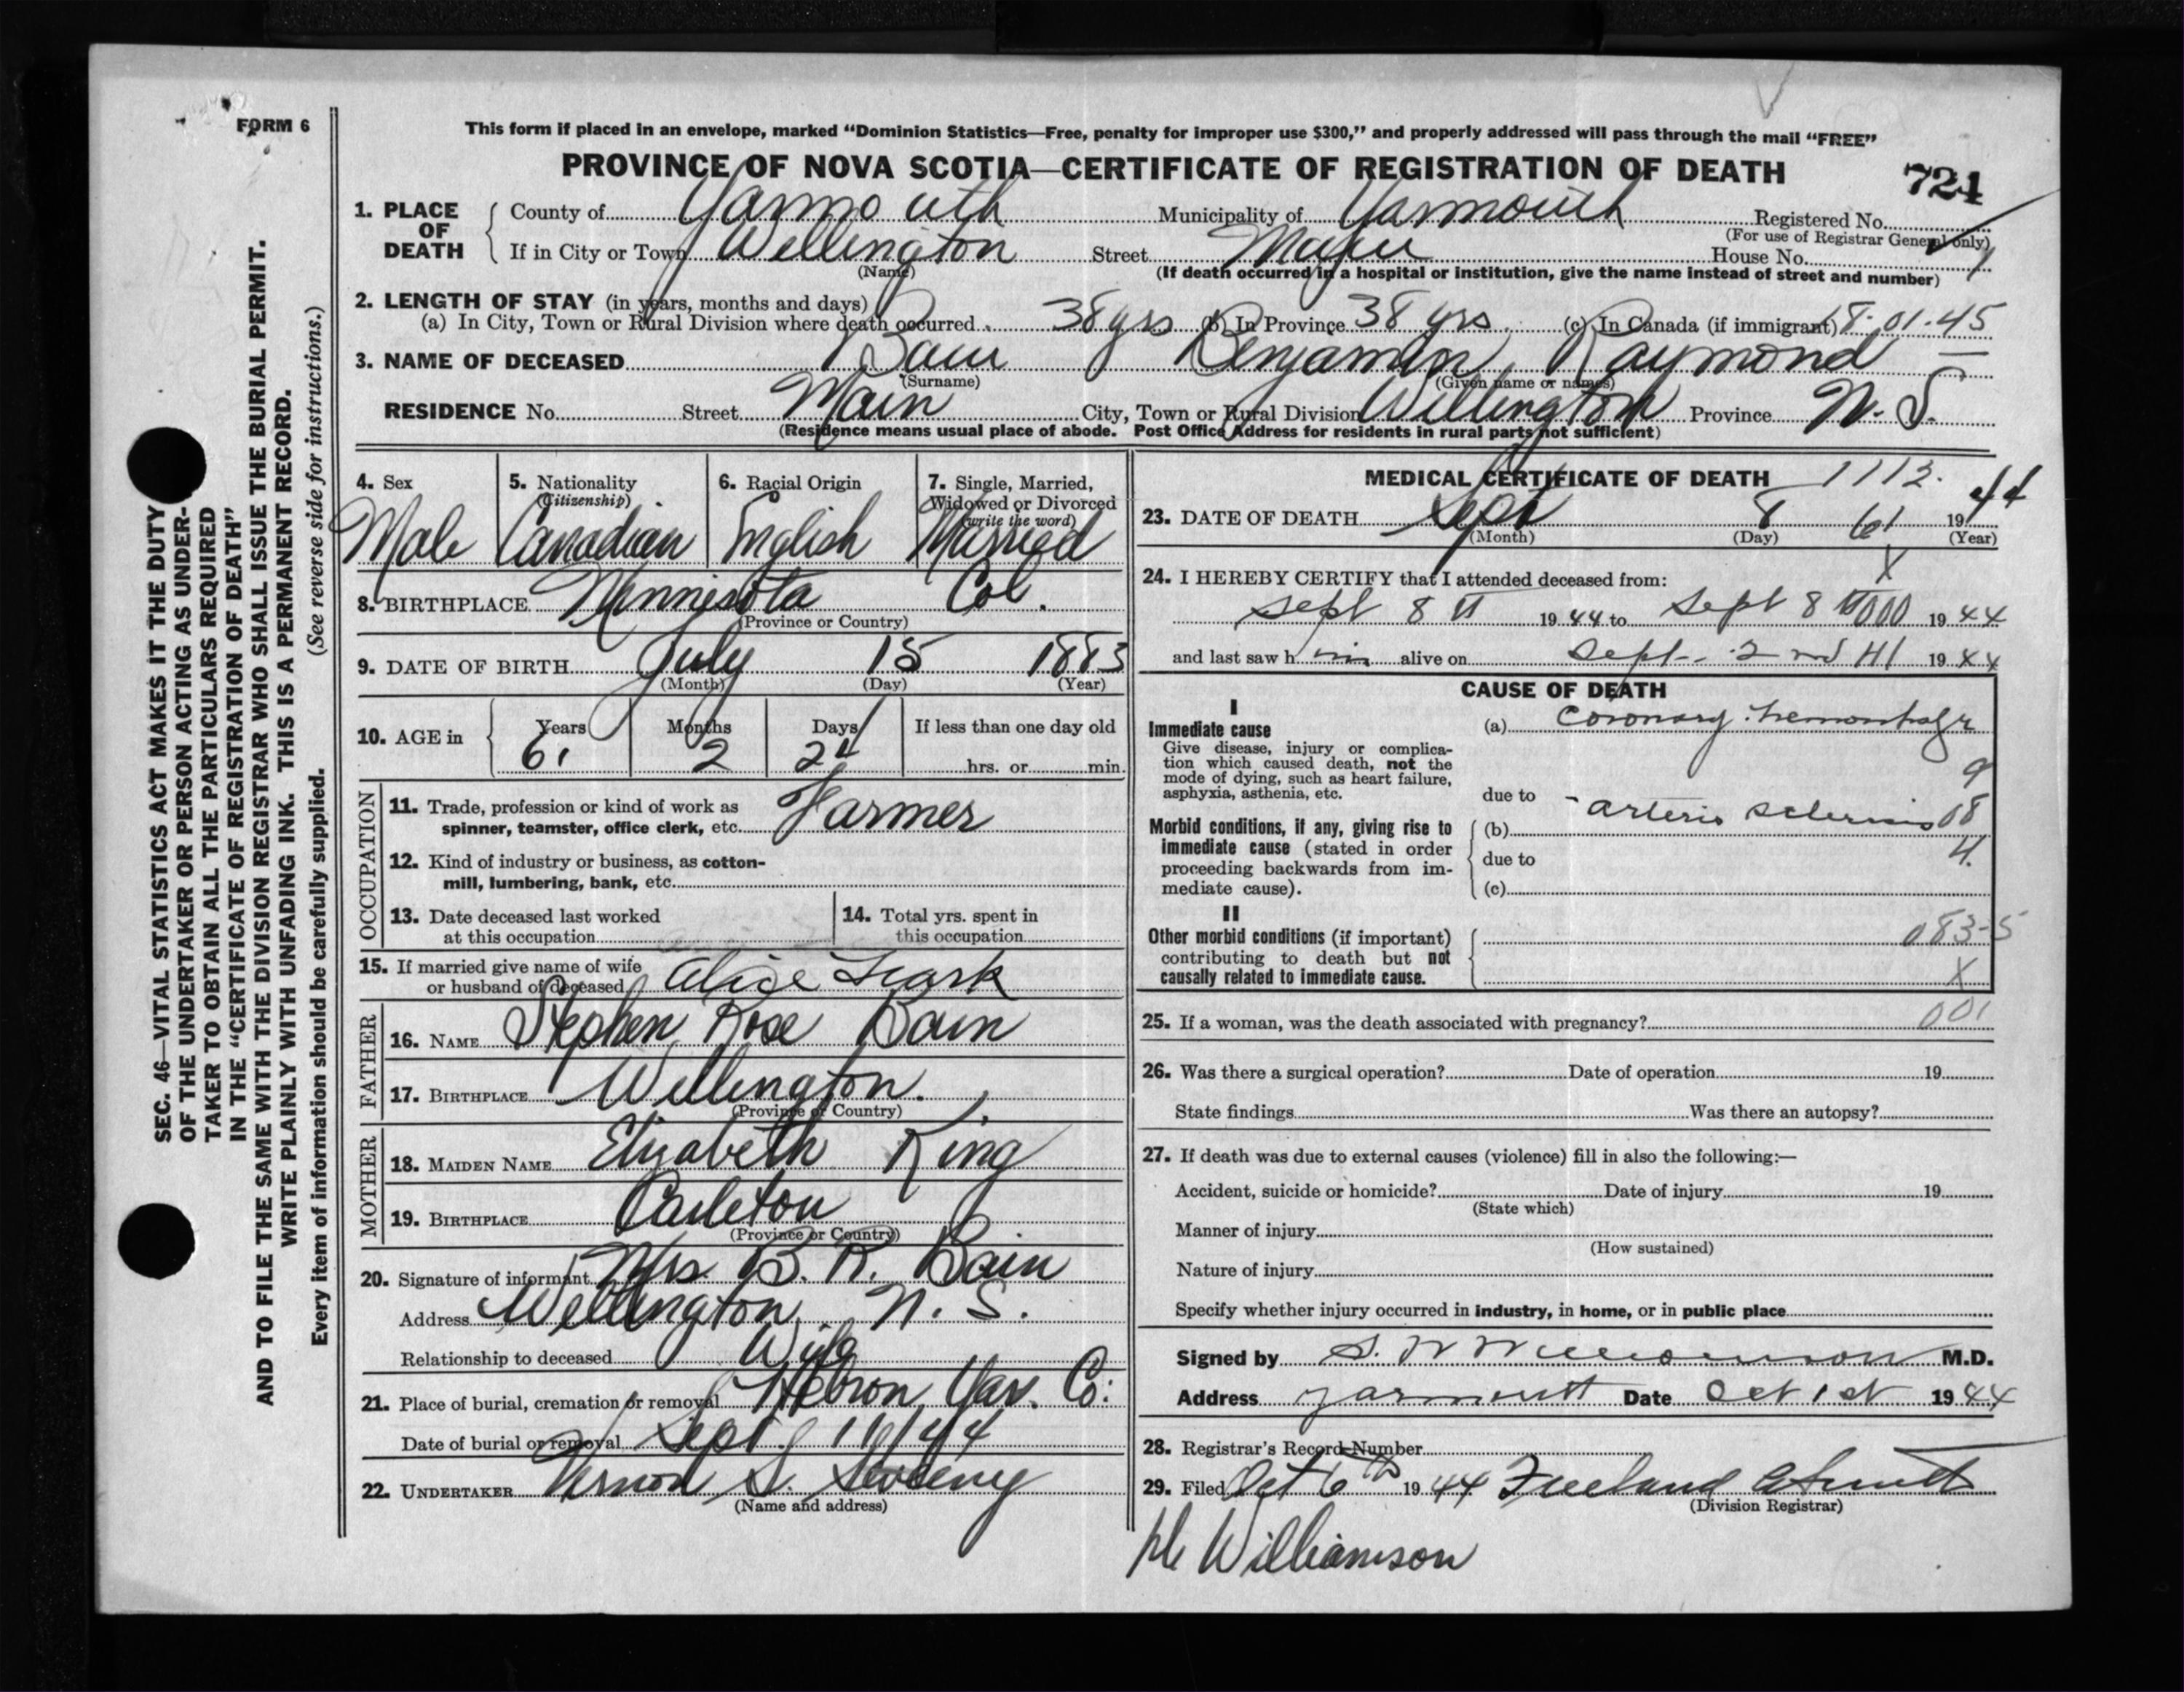 FORM 6
This form if placed in an envelope, marked “Dominion Statistics—Free, penalty for improper use $300,” and properly addressed will pass through the mail “FREE”
PROVINCE OF NOVA SCOTIA—CERTIFICATE OF REGISTRATION OF DEATH
724
1. PLACE OF DEATH
County of Yarmouth Municipality of Yarmouth Registered No.
(For use of Registrar General only)
If in City or Town Wellington Street Main House No.
(Name) (If death occurred in a hospital or institution, give the name instead of street and number)
2. LENGTH OF STAY (in years, months and days)
(a) In City, Town or Rural Division where death occurred 38 yrs (b) In Province 38 yrs (c) In Canada (if immigrant) 58-01-45
3. NAME OF DECEASED Bain Benjamin Raymond
(Surname) (Given name or names)
RESIDENCE No. Street Main City, Town or Rural Division Wellington Province N.S.
(Residence means usual place of abode. Post Office Address for residents in rural parts not sufficient)
4. Sex
Male
5. Nationality
(Citizenship)
Canadian
6. Racial Origin
English
7. Single, Married,
Widowed or Divorced
(write the word)
Married
8. BIRTHPLACE Minnesota Col.
(Province or Country)
9. DATE OF BIRTH July 15 1883
(Month) (Day) (Year)
10. AGE in Years Months Days If less than one day old
61 2 24 hrs. or min.
OCCUPATION
11. Trade, profession or kind of work as
spinner, teamster, office clerk, etc. Farmer
12. Kind of industry or business, as cotton-
mill, lumbering, bank, etc.
13. Date deceased last worked
at this occupation
14. Total yrs. spent in
this occupation
15. If married give name of wife
or husband of deceased Alice
FATHER
16. NAME Stephen Rose Bain
17. BIRTHPLACE Wellington.
(Province or Country)
MOTHER
18. MAIDEN NAME Elizabeth King
19. BIRTHPLACE Carleton
(Province or Country)
20. Signature of informant Mrs. B. R. Bain
Address Wellington, N. S.
Relationship to deceased Wife
21. Place of burial, cremation or removal Hebron, Yar. Co:
Date of burial or removal Sept. 11/44
22. UNDERTAKER Vernon S. Sweeny
(Name and address)
MEDICAL CERTIFICATE OF DEATH 1112.
23. DATE OF DEATH Sept 8 61 1944
(Month) (Day) (Year)
24. I HEREBY CERTIFY that I attended deceased from:
X
Sept 8 1944 to Sept 8 000 1944
and last saw him alive on Sept. 2nd 1944
CAUSE OF DEATH
I
Immediate cause
Give disease, injury or complica-
tion which caused death, not the
mode of dying, such as heart failure,
asphyxia, asthenia, etc.
(a) Coronary hemorrhage
9
due to
Morbid conditions, if any, giving rise to
immediate cause (stated in order
proceeding backwards from im-
mediate cause).
(b) arterio sclerosis 08
due to 4.
(c)
II
Other morbid conditions (if important)
contributing to death but not
causally related to immediate cause.
083-5
X
25. If a woman, was the death associated with pregnancy? 001
26. Was there a surgical operation? Date of operation 19
State findings Was there an autopsy?
27. If death was due to external causes (violence) fill in also the following:—
Accident, suicide or homicide? Date of injury 19
(State which)
Manner of injury
(How sustained)
Nature of injury
Specify whether injury occurred in industry, in home, or in public place
Signed by S. W Williamson M.D.
Address Yarmouth Date Oct 1st 1944
28. Registrar's Record Number
29. Filed Oct 6th 1944 Freeland
(Division Registrar)
Williamson
SEC. 46—VITAL STATISTICS ACT MAKES IT THE DUTY
OF THE UNDERTAKER OR PERSON ACTING AS UNDER-
TAKER TO OBTAIN ALL THE PARTICULARS REQUIRED
IN THE “CERTIFICATE OF REGISTRATION OF DEATH”
AND TO FILE THE SAME WITH THE DIVISION REGISTRAR WHO SHALL ISSUE THE BURIAL PERMIT.
WRITE PLAINLY WITH UNFADING INK. THIS IS A PERMANENT RECORD.
Every item of information should be carefully supplied. (See reverse side for instructions.)